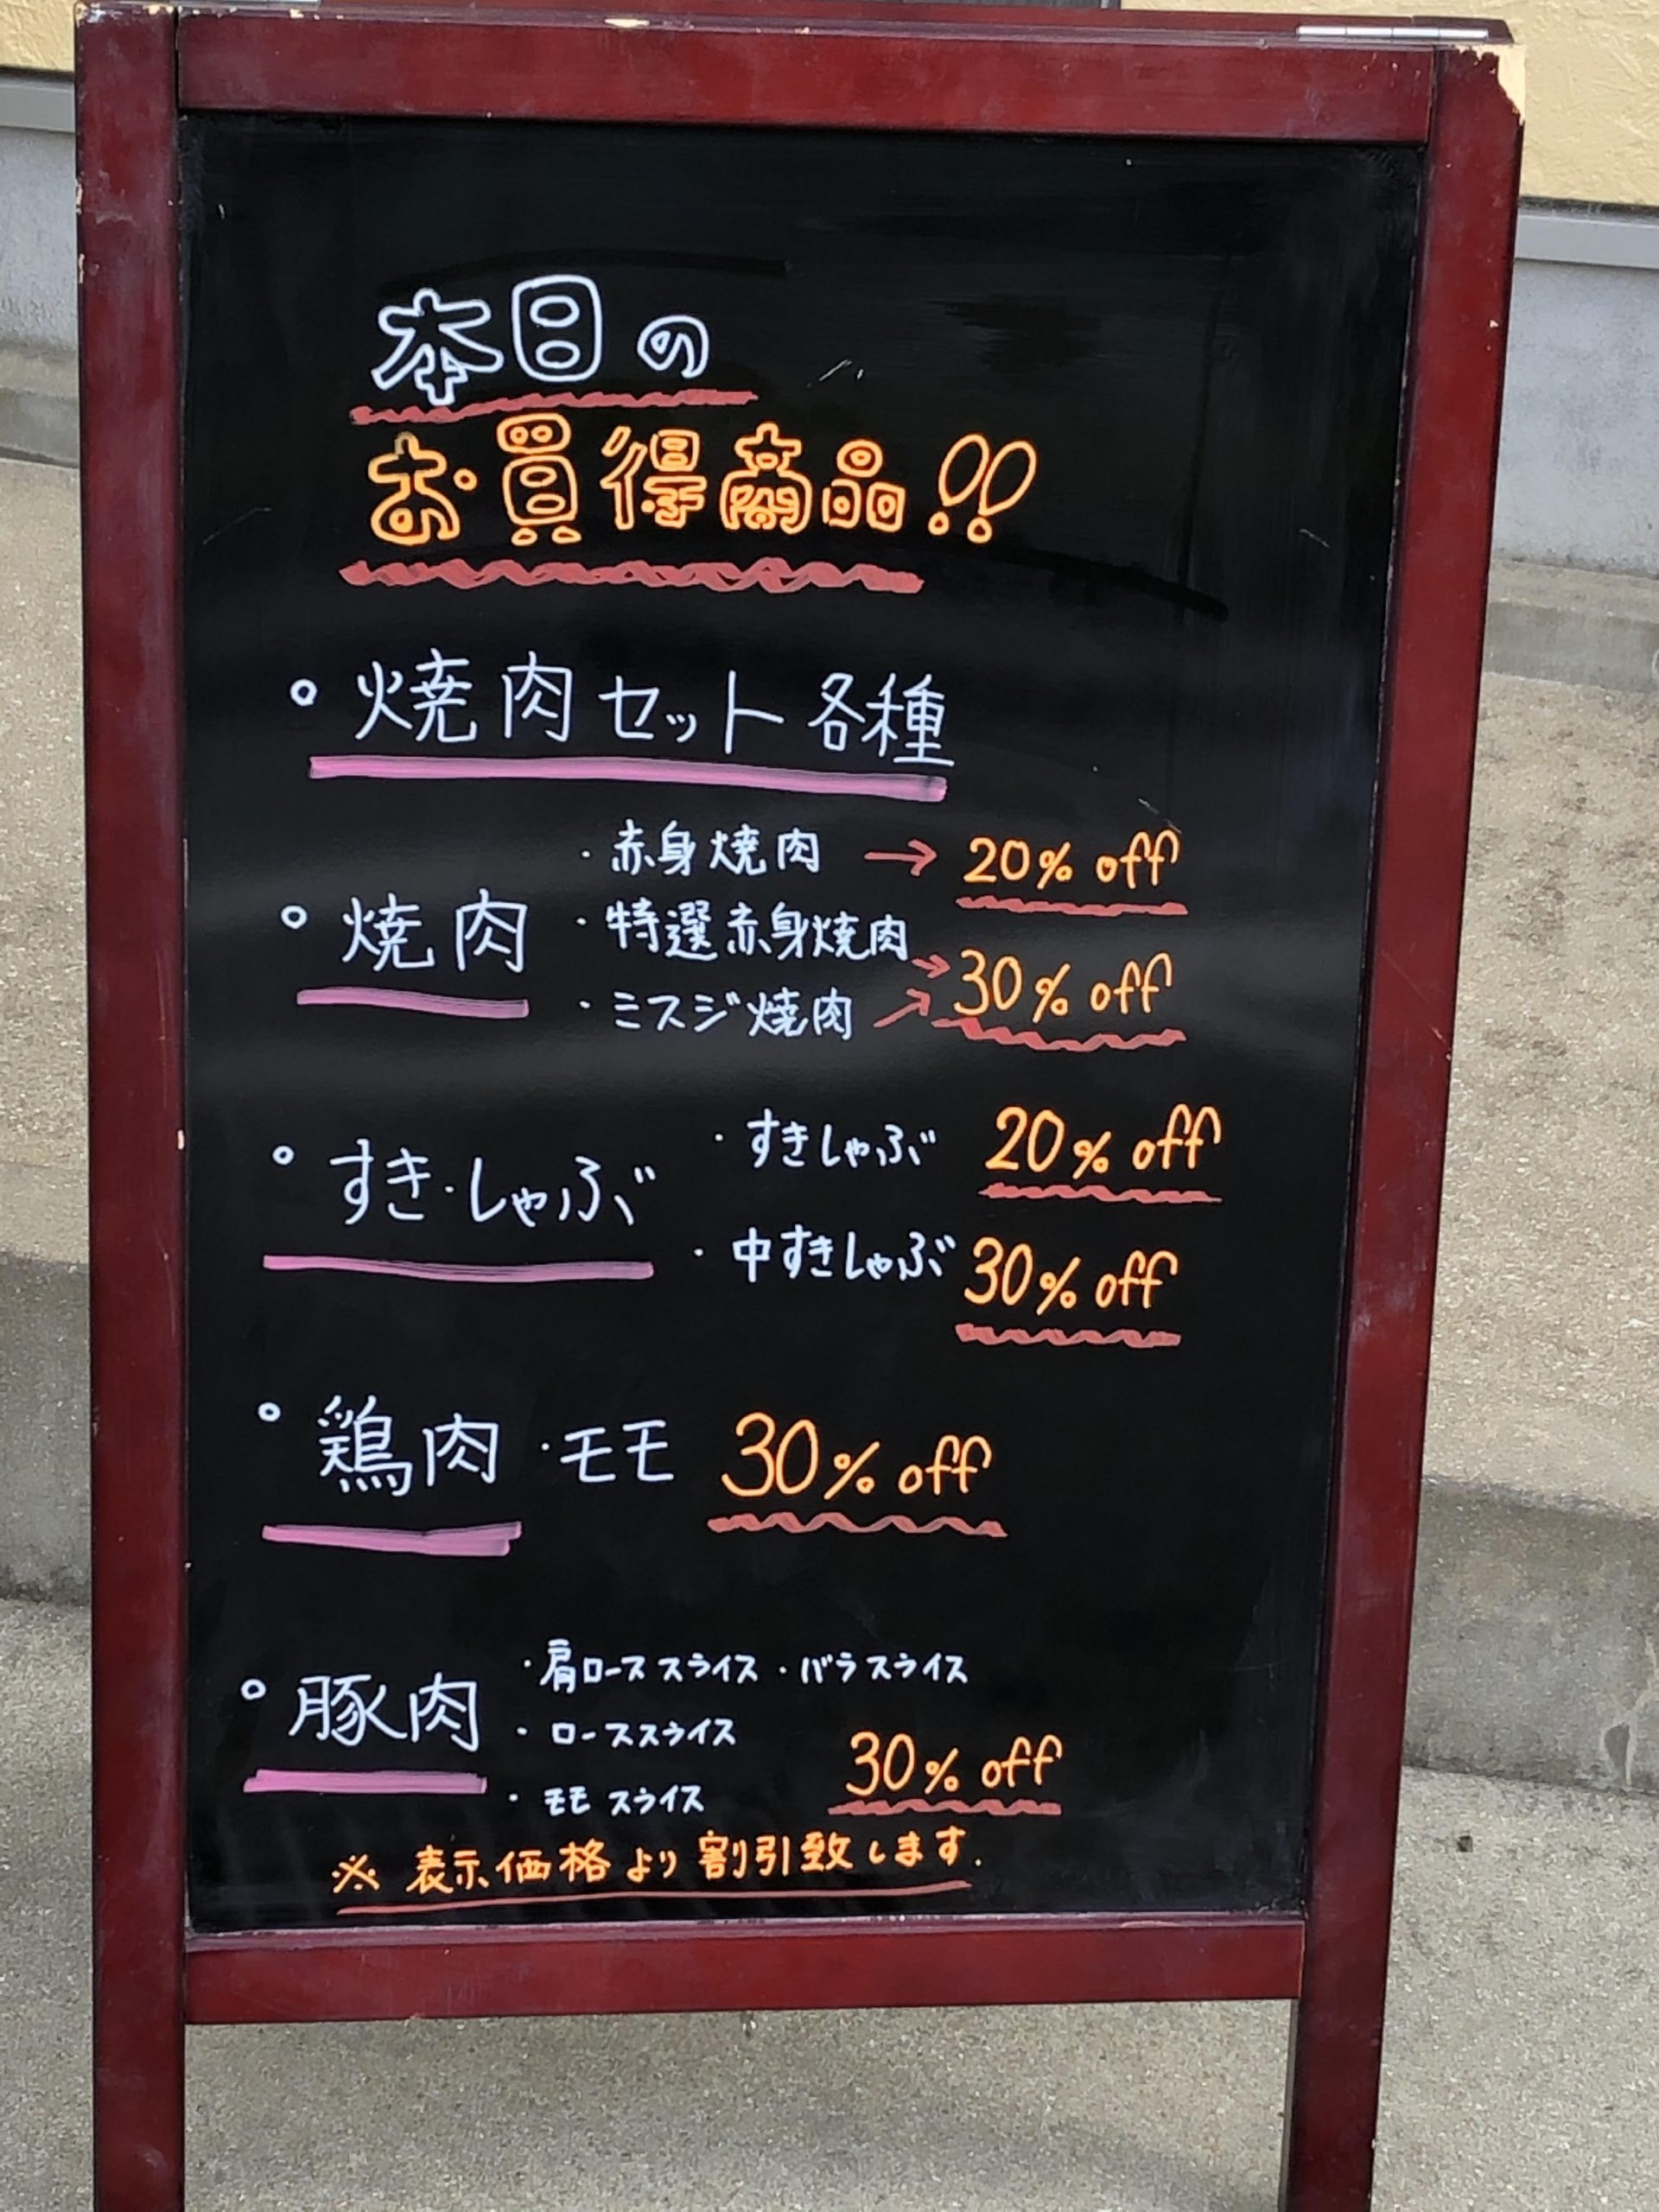 本日の
お買得商品!!
。焼肉セット各種
・赤身焼肉 → 20% off
。焼肉 ・特選赤身焼肉 → 30% off
・ミスジ焼肉 ↗
。すき・しゃぶ ・すきしゃぶ 20% off
・中すきしゃぶ 30% off
。鶏肉 ・モモ 30% off
。豚肉 ・肩ローススライス ・バラスライス
・ローススライス
・モモスライス 30% off
※表示価格より割引致します.